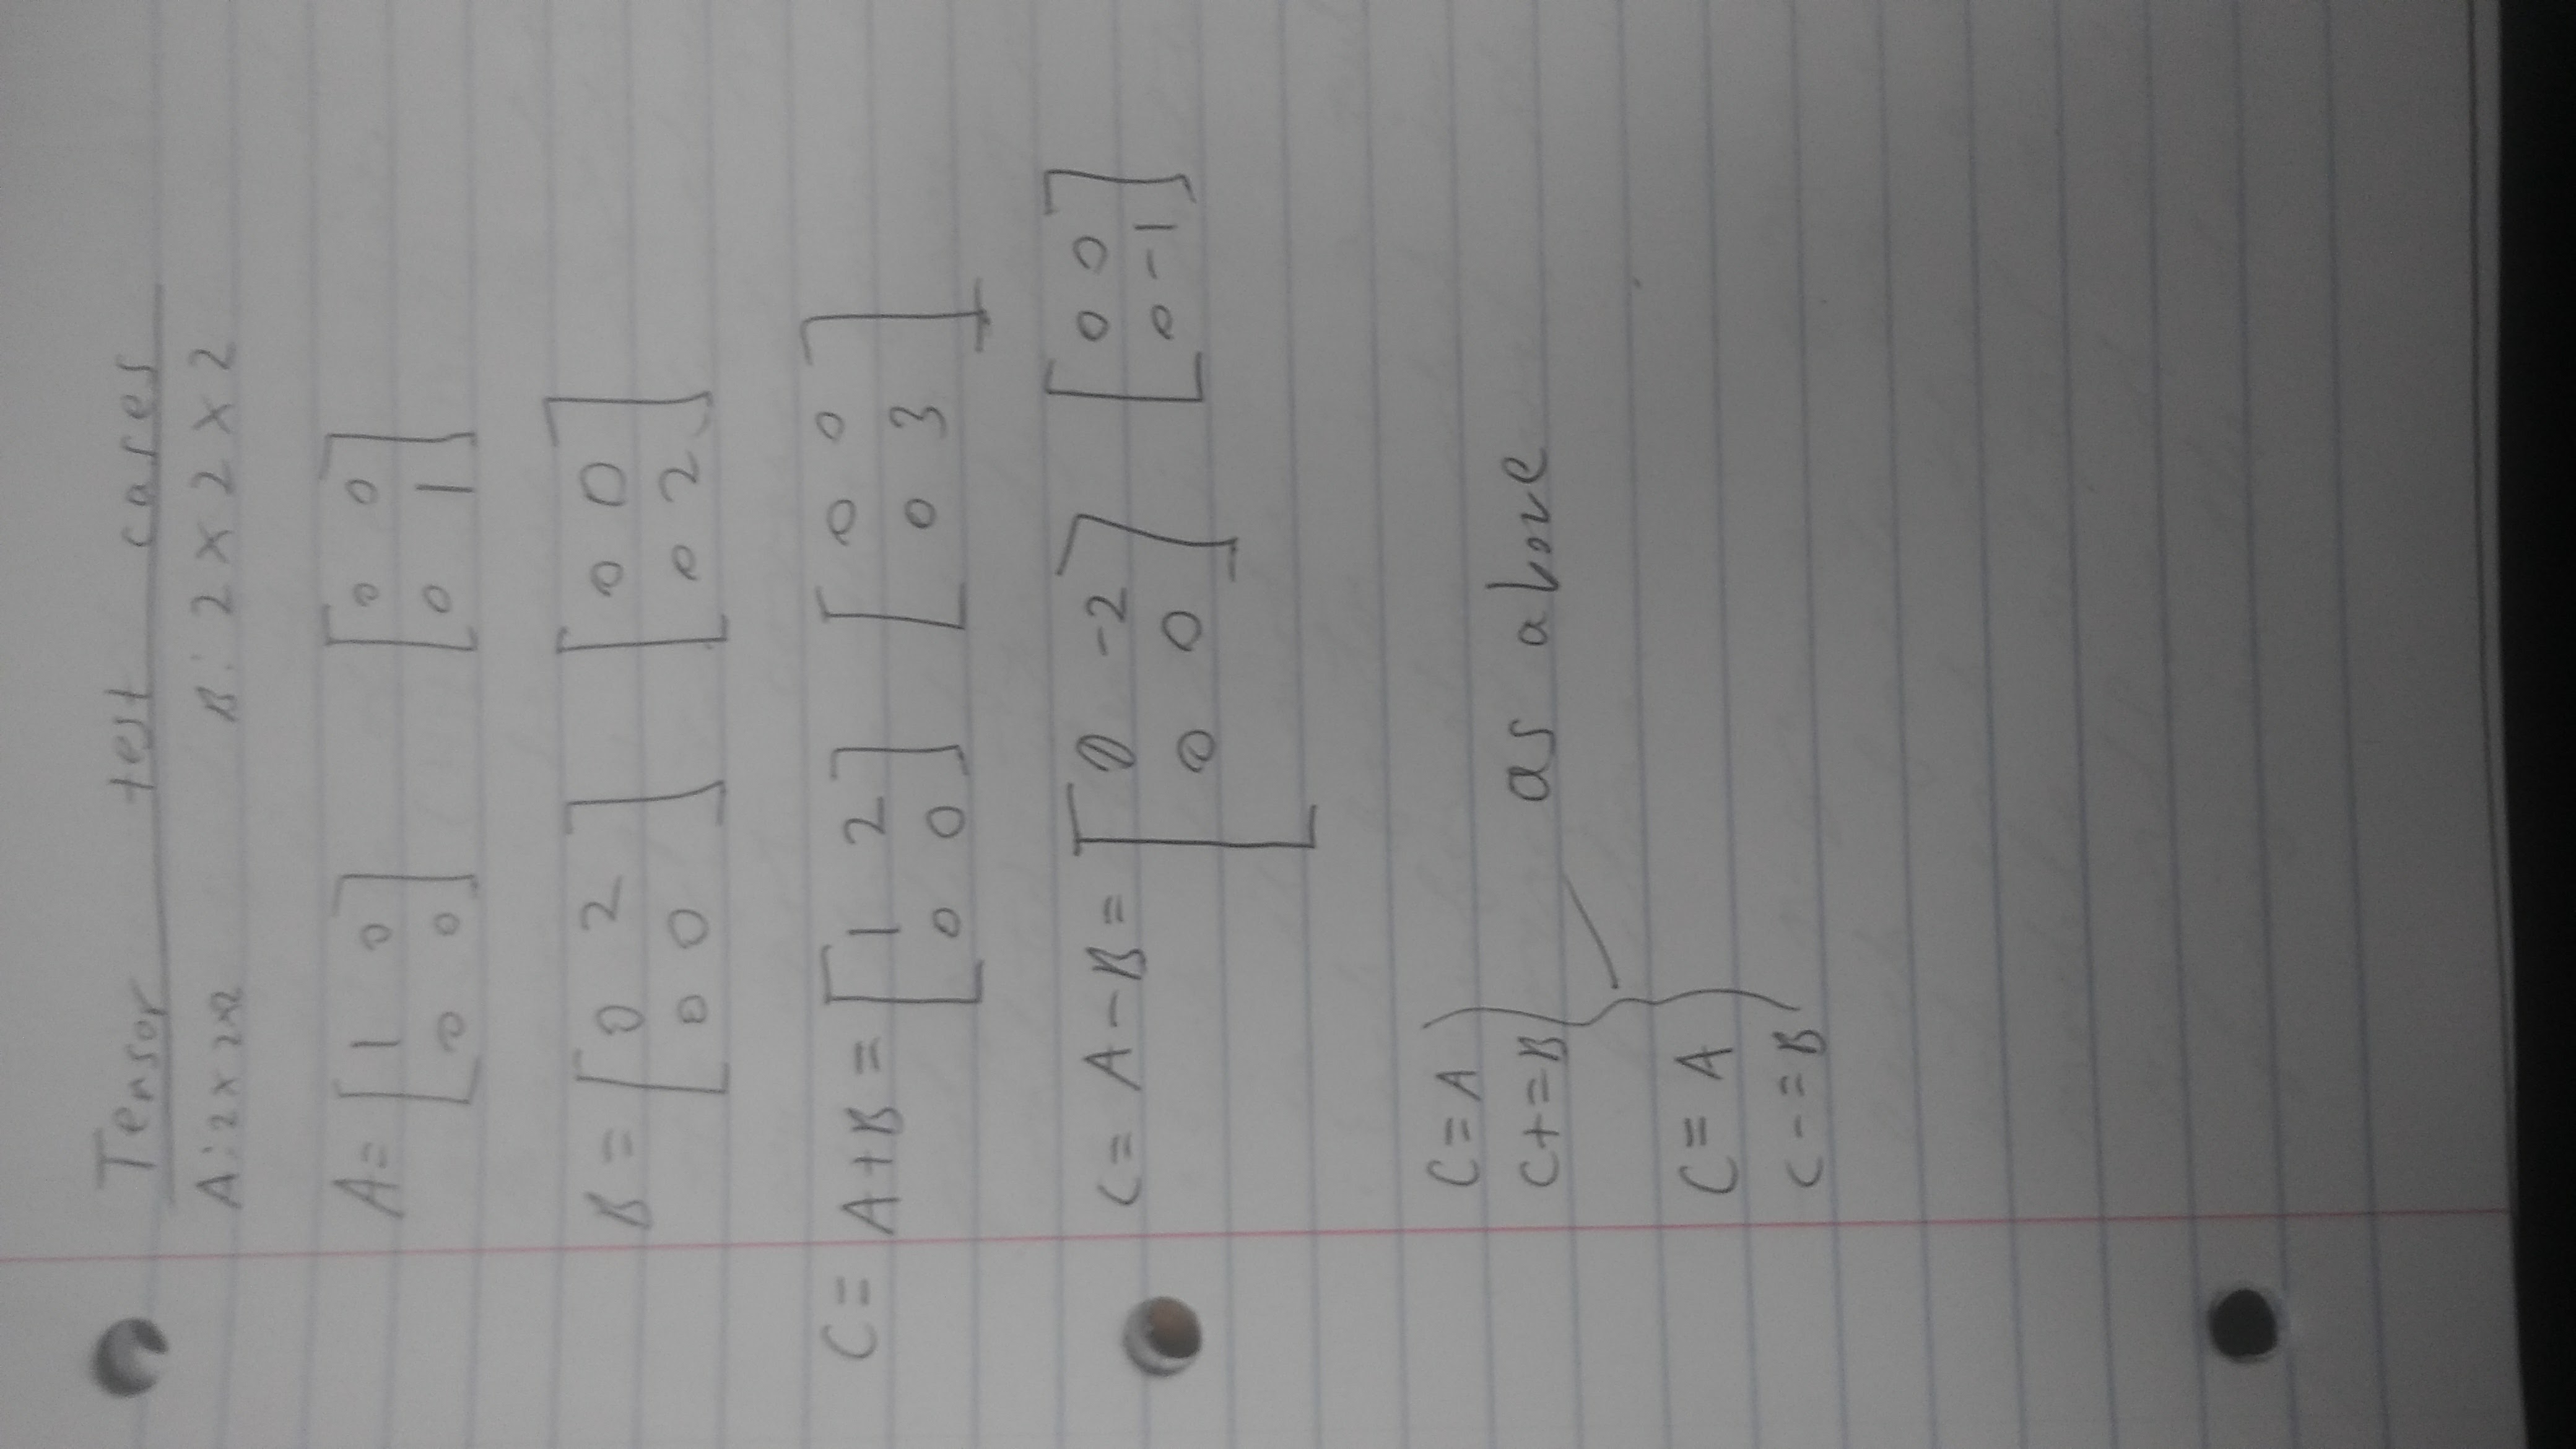 Tensor test cases
A: 2 x 2 x 2 B: 2 x 2 x 2
A = [ 1 0 [ 0 0
0 0 ] 0 1 ]
B = [ 0 2 [ 0 0
0 0 ] 0 2 ]
C = A + B = [ 1 2 [ 0 0
0 0 ] 0 3 ]
C = A - B = [ 0 -2 [ 0 0
0 0 ] 0 -1 ]
C = A
C += B as above
C = A
C -= B